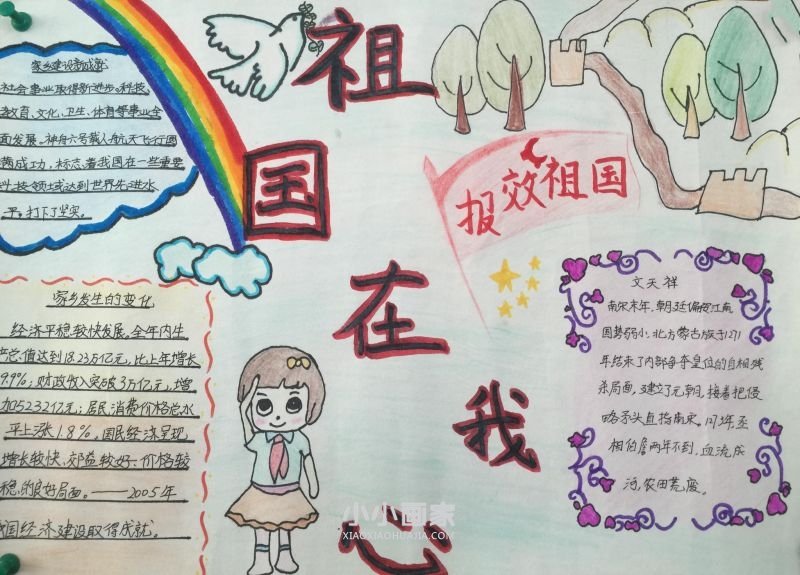 祖
国
在
我
心
报效祖国
家乡建设新成就
社会事业取得新进步。科技、
教育、文化、卫生、体育等事业全
面发展。神舟六号载人航天飞行圆
满成功，标志着我国在一些重要
科技领域达到世界先进水
平。打下了坚实。
家乡发生的变化
经济平稳较快发展。全年内生
产总值达到18.23万亿元，比上年增长
9.9%；财政收入突破3万亿元，增
加5232亿元；居民消费价格总水
平上涨1.8%。国民经济呈现
增长较快、效益较好、价格较
稳的良好局面。——2005年
我国经济建设取得成就。
文天祥
南宋末年，朝廷偏安江南
国势弱小，北方蒙古族于1271
年结束了内部争夺皇位的自相残
杀局面，建立了元朝，接着把侵
略矛头直指南宋。1273年
相伯
两年不到，血流成
河，农田荒废。
小小画家
XIAOXIAOHUAJIA.COM